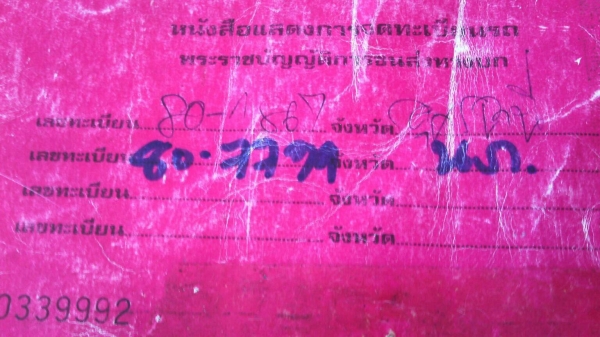 หนังสือแสดงการจดทะเบียนรถ
พระราชบัญญัติการขนส่งทางบก
เลขทะเบียน 80-1867 จังหวัด
เลขทะเบียน จังหวัด
เลขทะเบียน จังหวัด
เลขทะเบียน จังหวัด
0339992